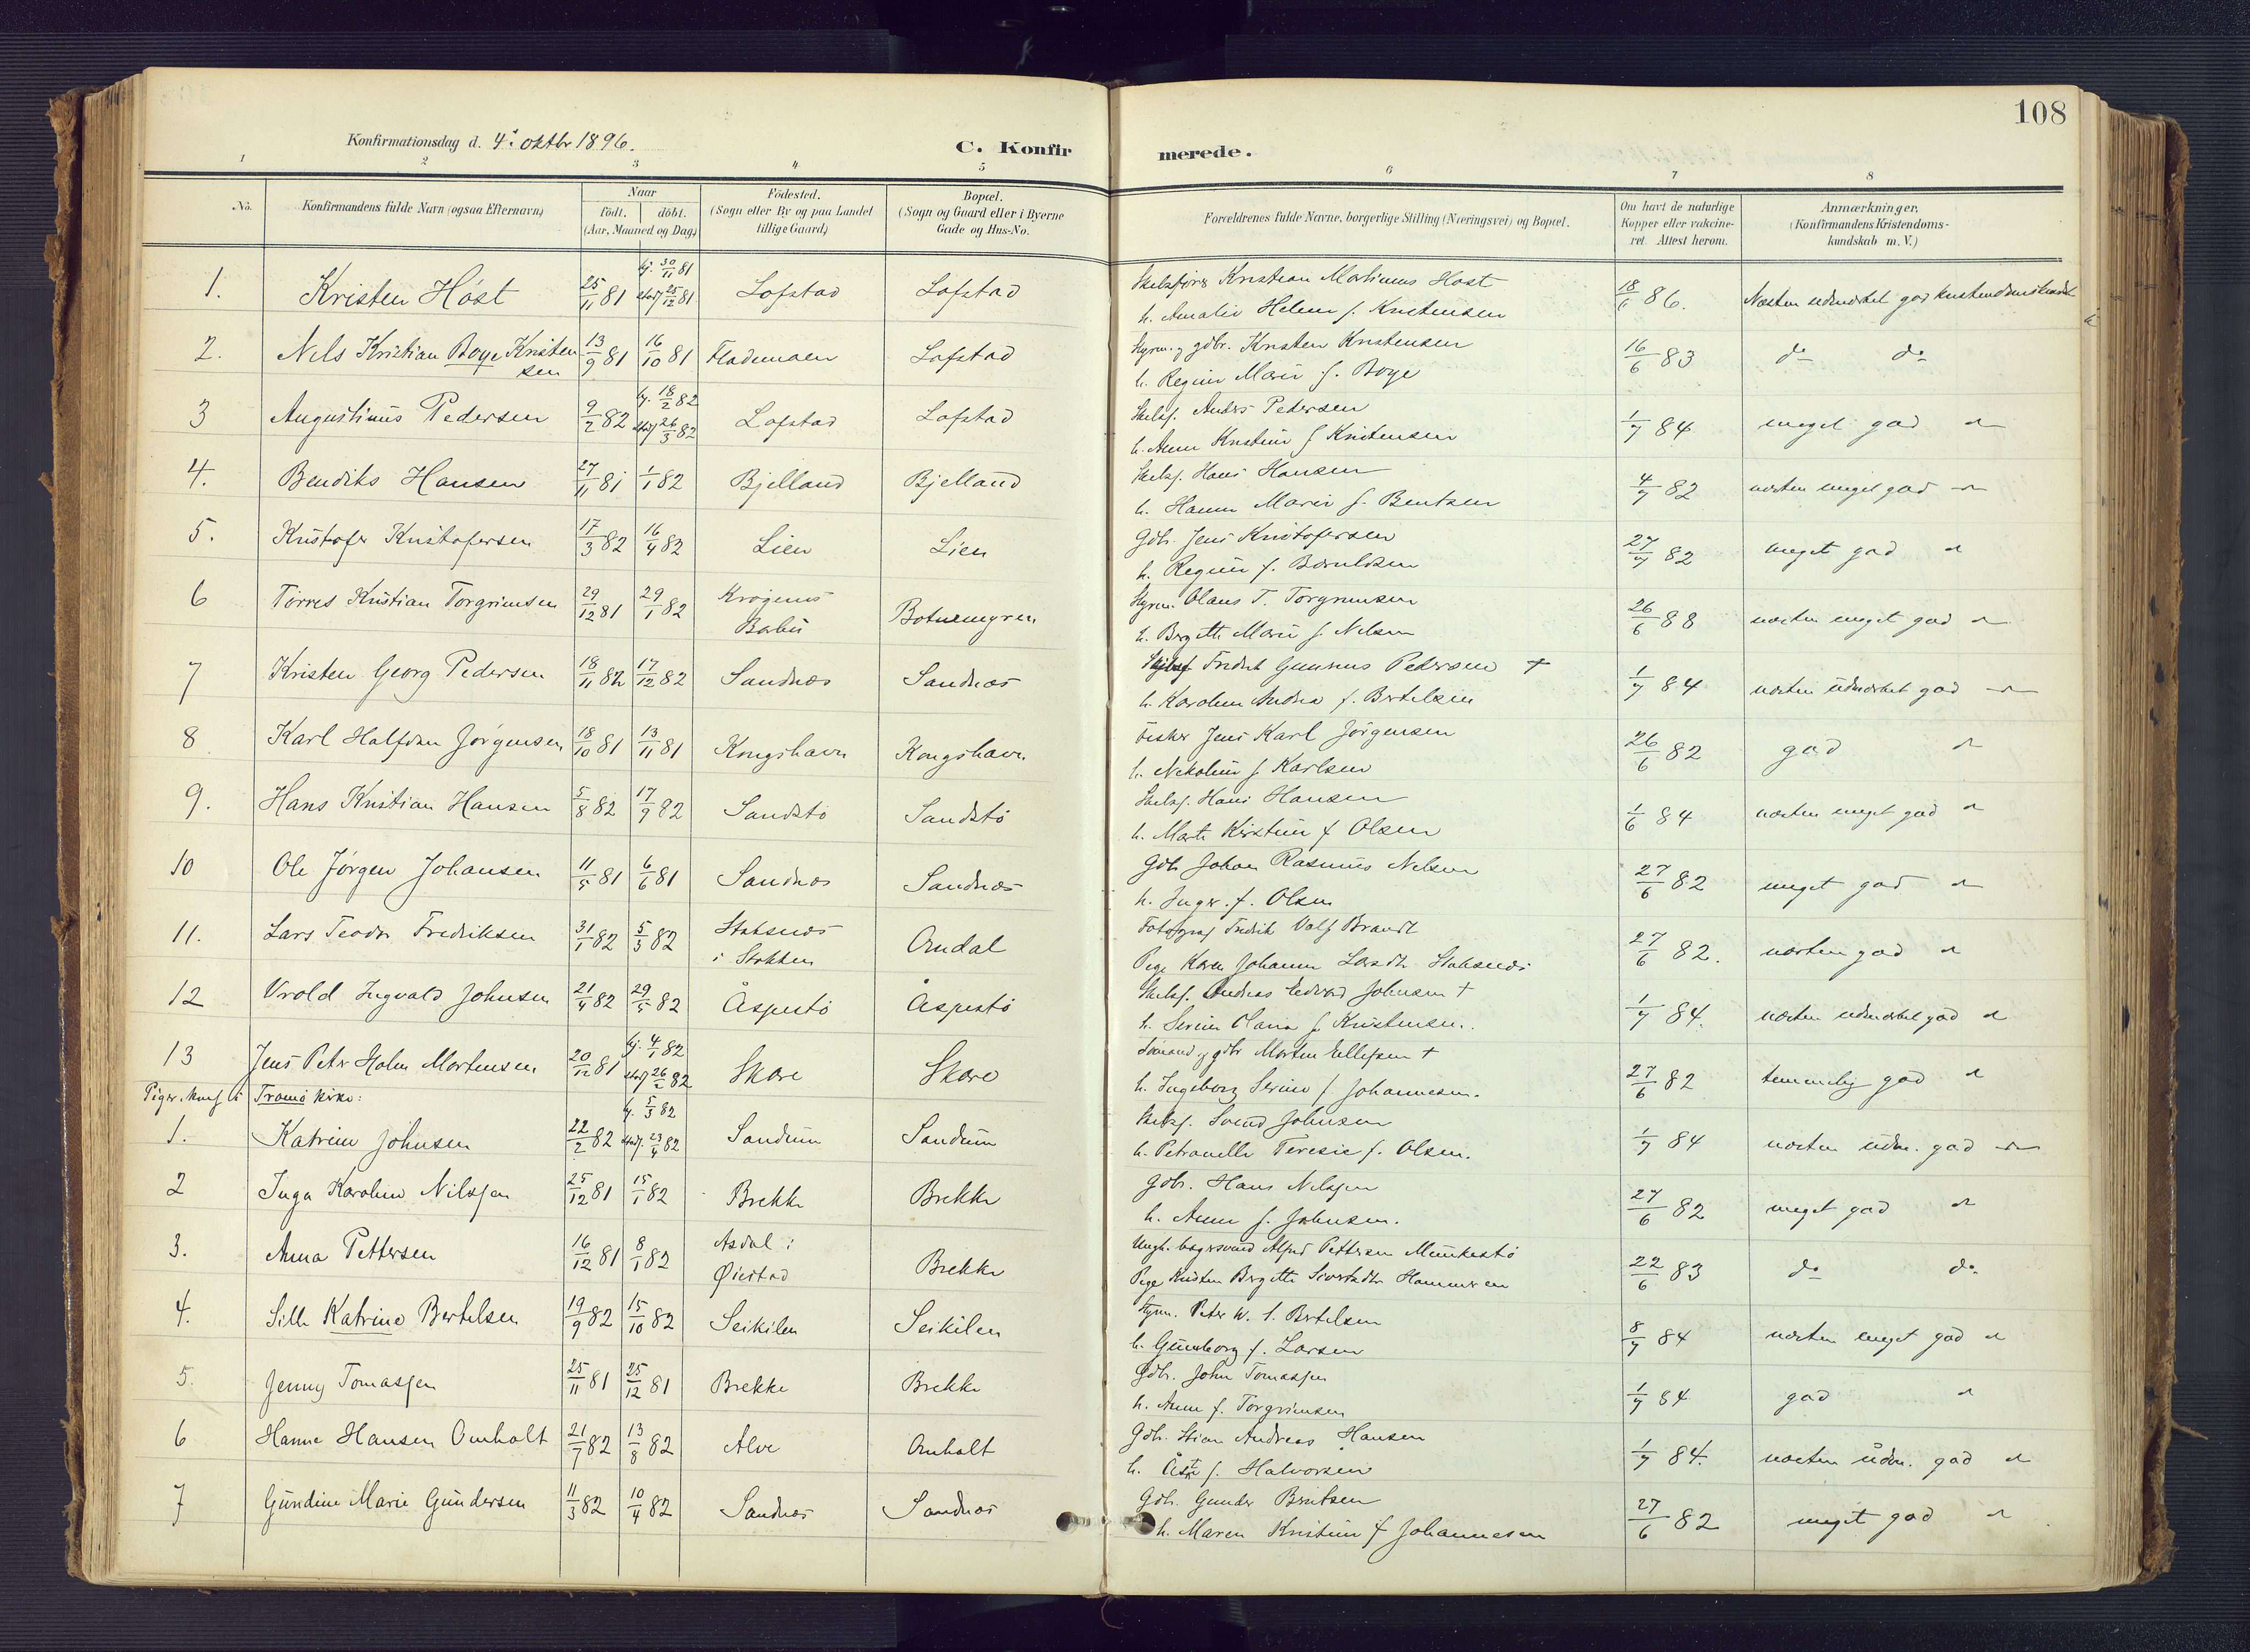 108
Konfirmationsdag d. 4de oktbr 1896.
C. Konfirmerede.
1 2 3 4 5 6 7 8
No.
Konfirmandens fulde Navn (ogsaa Efternavn)
Naar
födt. döbt.
(Aar, Maaned og Dag)
Födested.
(Sogn eller By og paa Landet
tillige Gaard)
Bopæl.
(Sogn og Gaard eller i Byerne
Gade og Hus-No.
Forældrenes fulde Navne, borgerlige Stilling (Næringsvei) og Bopæl.
Om havt de naturlige
Kopper eller vakcine-
ret. Attest herom.
Anmærkninger.
(Konfirmandens Kristendoms-
kundskab m. V.)
1. Kristen Höst 25/11 81 hj. 30/11 81 stadf 25/12 81 Lofstad Lofstad
Kristian Martinius Höst
h. Amalie Helene f. Kristensen
86. Næsten udmærket god kristendomskundsk
2. Nils Kristian Boye Kristensen 13/9 81 16/10 81 Flademoen Lofstad
Styrm. og gdbr. Kristen Kristensen
h. Regine Marie f. Boye
16/6 83 do do
3 Augustinus Pedersen 9/2 82 hj. 18/2 82 stadf 26/3 82 Lofstad Lofstad
Skibsf. Anders Pedersen
h. Anne Kristine f Kristensen
1/7 84 meget god
4. Bendiks Hansen 27/11 81 1/1 82 Bjelland Bjelland
Skibsf. Hans Hansen
h. Hanne Marie f. Bentzen
4/7 82 næsten meget god
5. Kristofer Kristofersen 17/3 82 16/4 82 Lien Lien
Gdb. Jens Kristofersen
h. Regine f.
27/7 82 meget god
6 Törres Kristian Torgrimsen 29/12 81 29/1 82 Krögenes Barbu
Styrm. Olaus T. Torgrimsen
h. Bergitte Marie f. Nilsen
26/6 88 næsten meget god
7 Kristen Georg Pedersen 18/11 82 17/12 82 Sandnæs Sandnæs
Fredrik Gunnius Pedersen †
h. Karoline Andrea f. Bertelsen
1/7 84 næsten udmærket god
8 Karl Halfdan Jörgensen 18/10 81 13/11 81 Kongshavn Kongshavn
Fisker Jens Karl Jörgensen
h. Nikoline f Karlsen
26/6 82 god
9. Hans Kristian Hansen 5/8 82 17/9 82 Sandstö Sandstö
Skibsf. Hans Hansen
h. Marte Kirstine f Olsen
1/6 84 næsten meget god
10 Ole Jörgen Johansen 11/5 81 6/6 81 Sandnæs Sandnæs
Gdb Johan Rasmus Nilsen
h. Inger f. Olsen
27/6 82 meget god
11. Lars Teodor Fredriksen 31/1 82 5/3 82 Staksnes i Stokken Arndal
Fotograf Fredrik Valf Brandt
Pige Karen Johanne Larsdtr Staksnes
27/6 82. næsten god
12 Vrold Ingvald Johnsen 21/4 82 29/5 82 Åspestö Åspestö
Skibsf. Andreas Edvard Johnsen †
h. Serine Maria f Kristensen.
1/7 84. næsten udmærket god
13 Jens Peter Holm Mortensen 20/12 81 hj. 4/1 82 stadf 26/2 82 Skare Skare
Sömand og gdbr Morten Ellefsen †
h. Ingeborg Serine f. Johannesen.
27/6 82 temmelig god
Piger. konf. i Tromö kirke:
1. Katrine Johnsen 22/2 82 hj. 5/3 82 stadf. 23/4 82 Sandum Sandum
Skibsf. Svend Johnsen
h. Petronelle Teresie f. Olsen.
1/7 84 næsten udm. god
2 Inga Karoline Nilssen 25/12 81 15/1 82 Brekke Brekke
Gdbr. Hans Nilssen
h. Anne f. Johnsen.
27/6 82 meget god
3. Anna Pettersen 16/12 81 8/1 82 Asdal i Øiestad Brekke
Ungk. bagersvend Alfred Pettersen Munkestö
Pige Kristen Bergitte Sivertsdtr Hammeren
22/6 83 do do
4. Sille Katrine Bertelsen 19/9 82 15/10 82 Seikilen Seikilen
Styrm. Peter W. S. Bertelsen
h. Gunborg f. Larsen
8/7 84 næsten meget god
5. Jenny Tomassen 25/11 81 25/12 81 Brekke Brekke
Gdbr. John Tomassen
h. Anne f. Torgrimsen
1/7 84 god
6 Hanne Hansen Omholt 21/7 82 13/8 82 Alve Omholt
Gdb. Stian Andreas Hansen
h. f. Halvorsen
1/7 84. næsten udm. god
7 Gundine Marie Gundersen 11/3 82 10/4 82 Sandnæs Sandnæs
Gdb. Gunder Berntsen
h. Maren Kristine f Johannesen
27/6 82 meget god